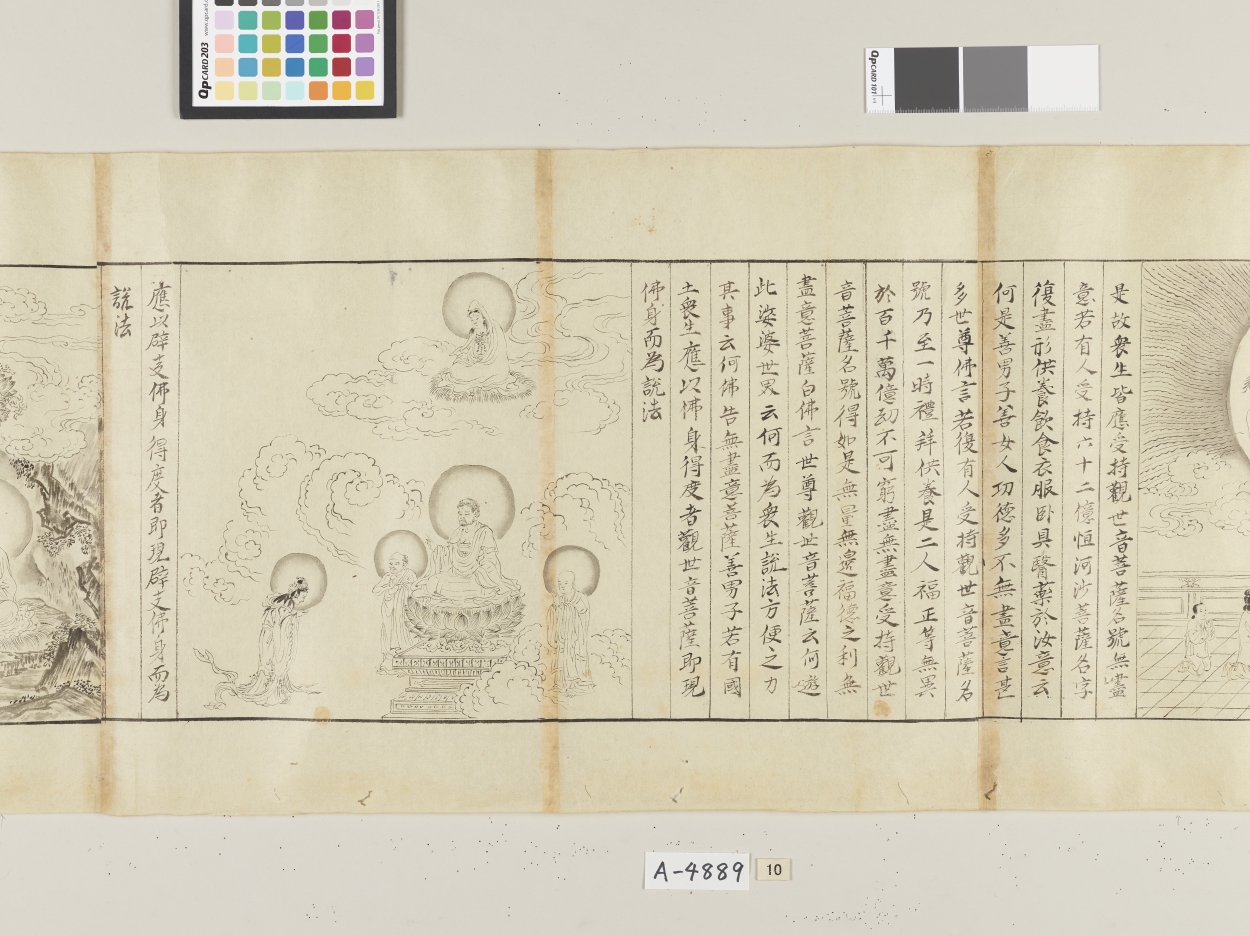 是故衆生皆應受持觀世音菩薩名號無盡
意若有人受持六十二億恒河沙菩薩名字
復盡形供養飲食衣服卧具醫藥於汝意云
何是善男子善女人功德多不無盡意言甚
多世尊佛言若復有人受持觀世音菩薩名
號乃至一時禮拜供養是二人福正等無異
於百千萬億劫不可窮盡無盡意受持觀世
音菩薩名號得如是無量無邊福德之利無
盡意菩薩白佛言世尊觀世音菩薩云何遊
此娑婆世界云何而為衆生說法方便之力
其事云何佛告無盡意菩薩善男子若有國
土衆生應以佛身得度者觀世音菩薩即現
佛身而為說法
應以辟支佛身得度者即現辟支佛身而為
說法
QPCARD 203
QPCARD 101
A-4889
10